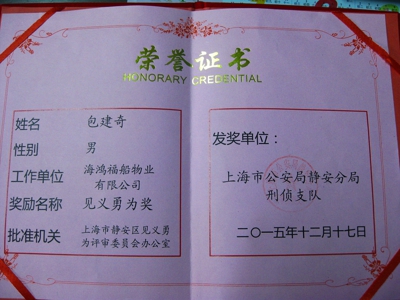 荣誉证书
HONORARY CREDENTIAL
姓名 包建奇
性别 男
工作单位 海鸿福船物业
有限公司
奖励名称 见义勇为奖
批准机关 上海市静安区见义勇
为评审委员会办公室
发奖单位：
上海市公安局静安分局
刑侦支队
二〇一五年十二月十七日